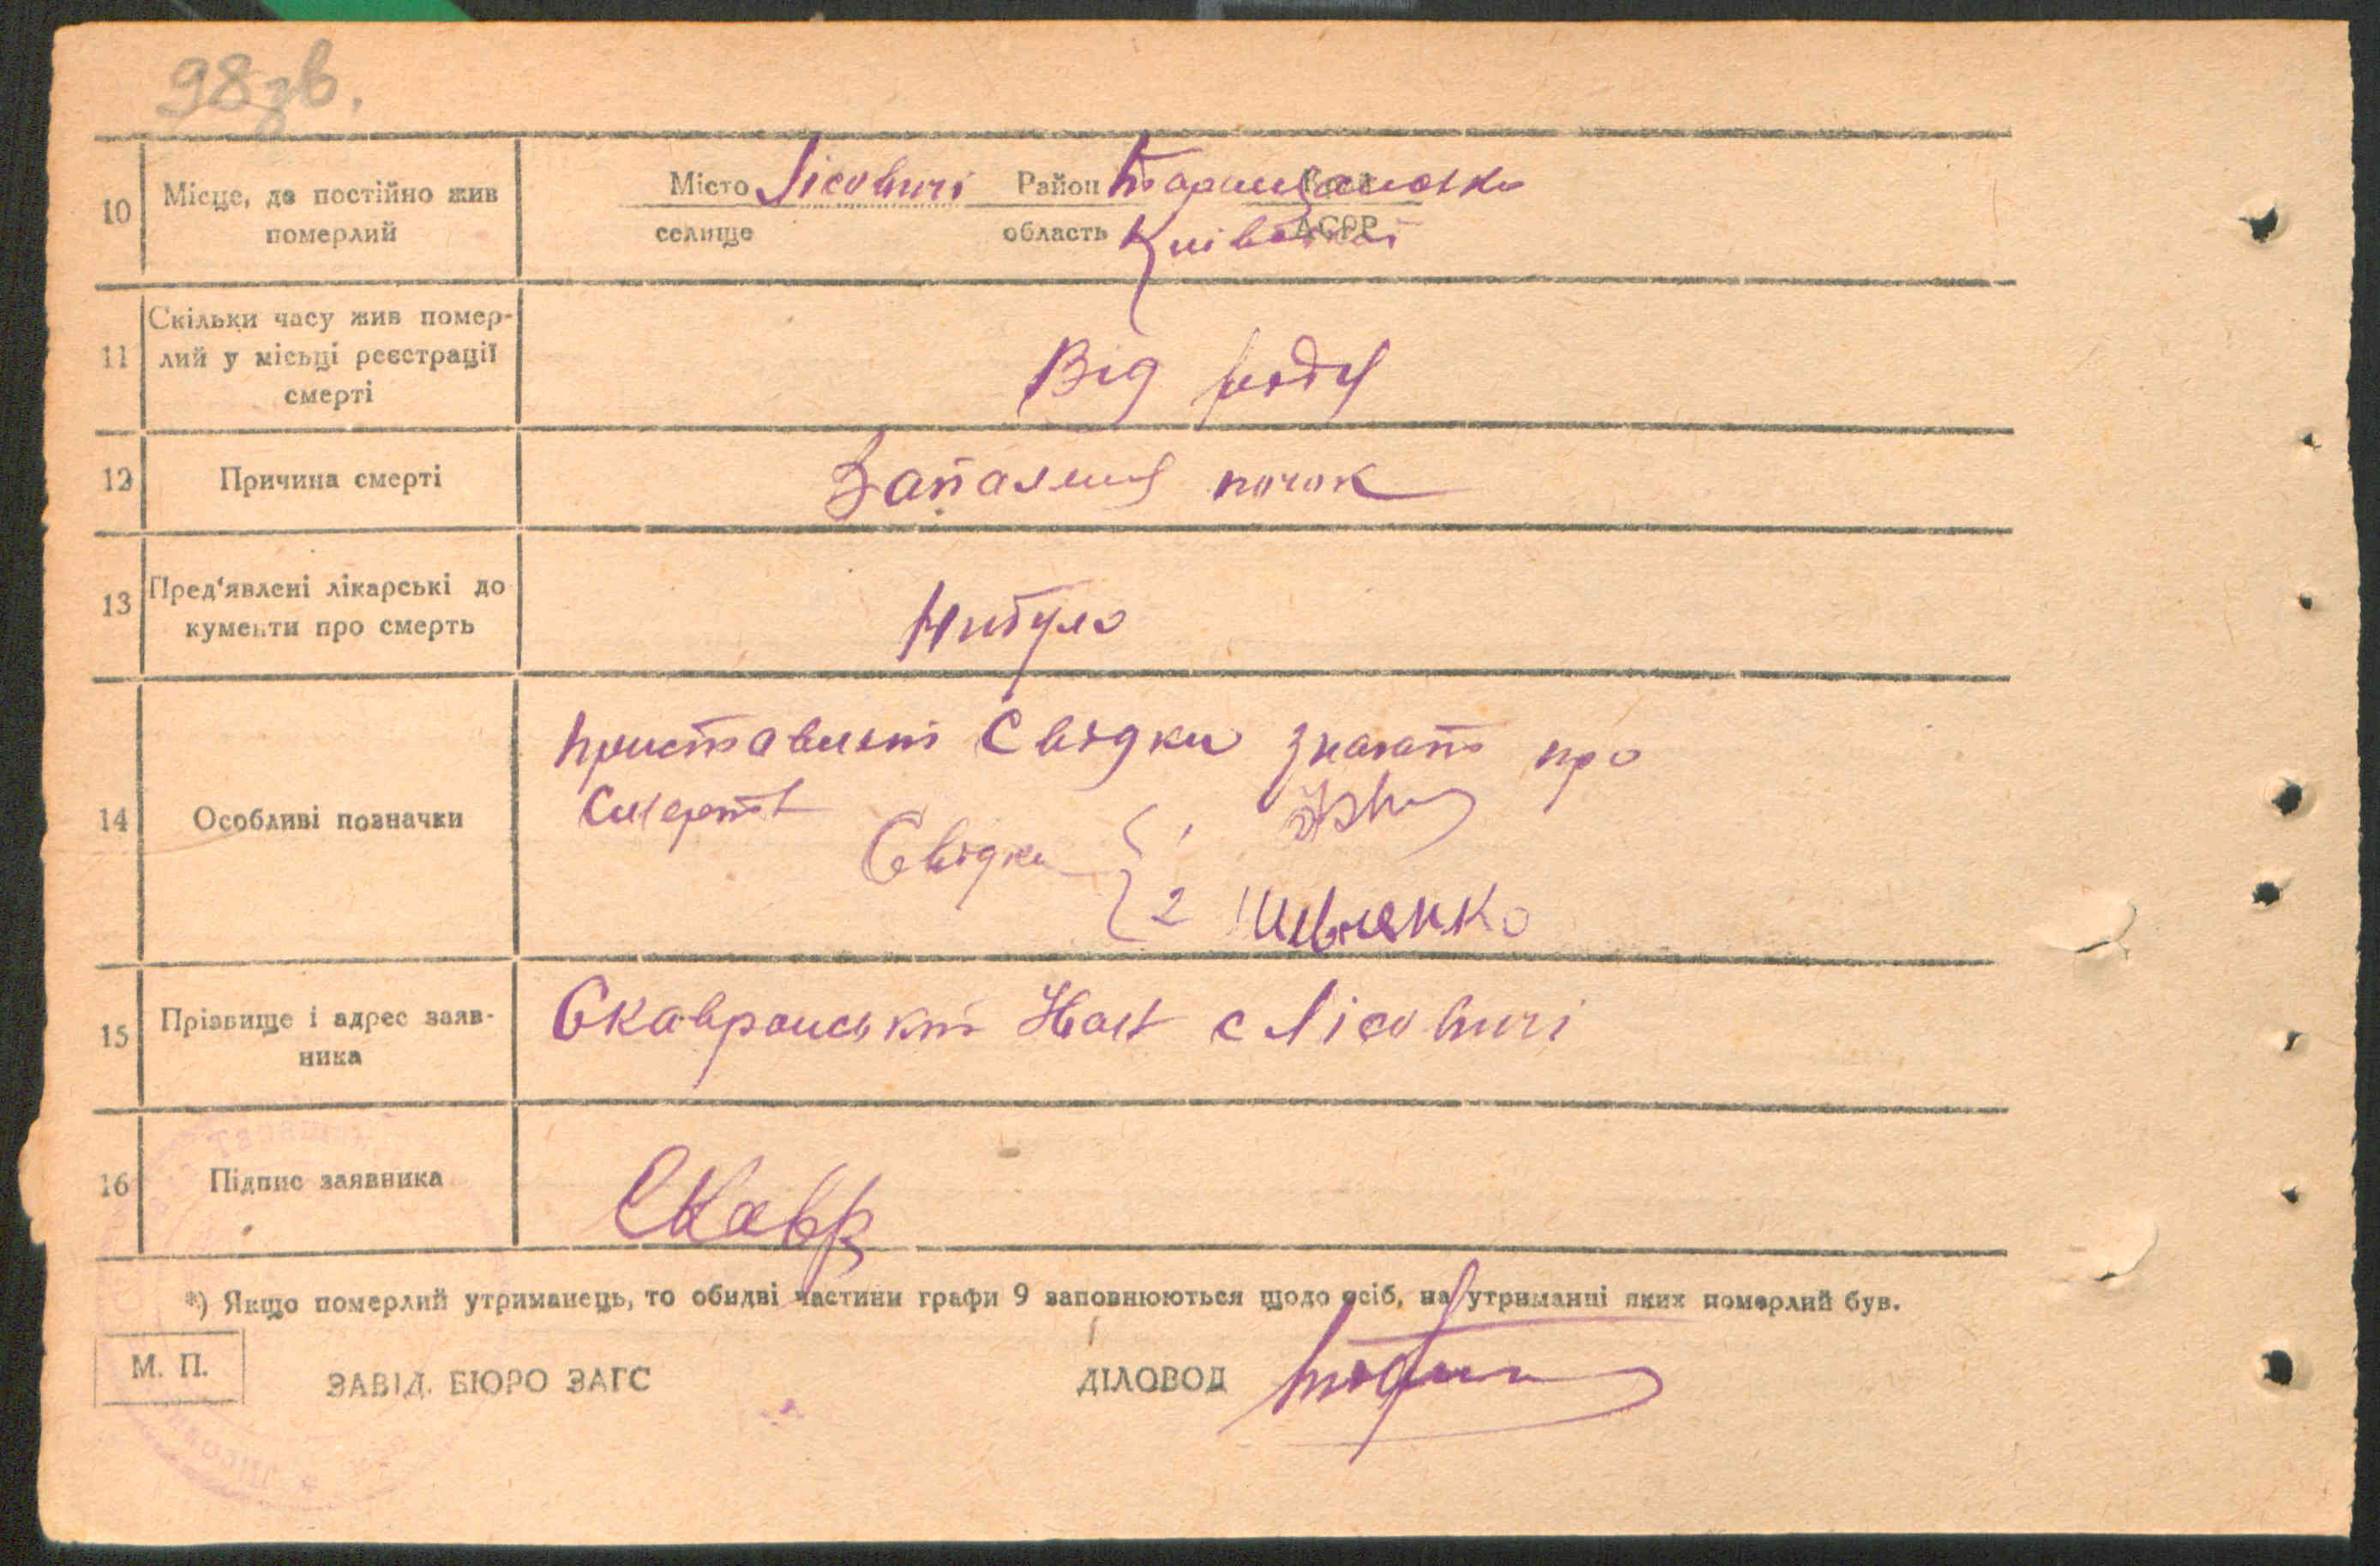 98зв.
10 Місце, де постійно жив померлий Місто Лісовичі Район Таращанськ
селище область Київської АСРР
11 Скільки часу жив помер-
лий у місьці реєстрації
смерті
Від роду
12 Причина смерті Запалення почок
13 Пред'явлені лікарські до
кументи про смерть
Нибуло
14 Особливі позначки
Приставлені Свідки знають про
Смерть
Свідки 1
2 Шевченко
15 Прізвище і адрес заяв-
ника
Скавронський Наст с Лісовичі
16 Підпис заявника Скавр
*) Якщо померлий утриманець, то обидві частини графи 9 заповнюються щодо осіб, на утриманні яких померлий був.
М. П. ЗАВІД. БЮРО ЗАГС ДІЛОВОД